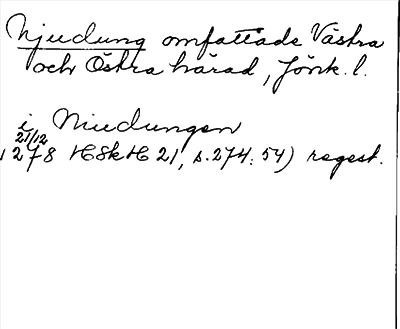 Njudung omfattade Västra
och Östra härad, Jönk. l.
i Niudungen
21/12
1278 HSkH 21, s. 274: 54) regest.